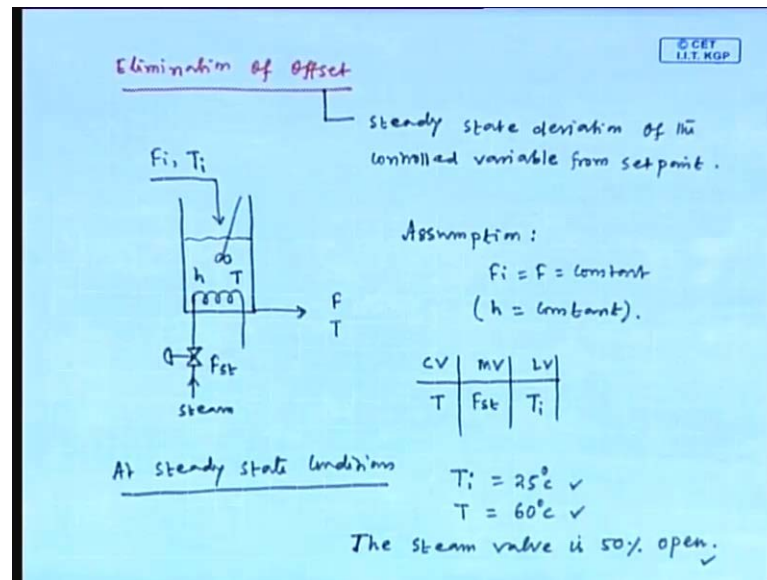 © CET
I.I.T. KGP
Elimination of Offset
steady state deviation of the
controlled variable from set point.
Fi, Ti
h T
F
T
Fst
steam
Assumption:
Fi = F = constant
(h = constant).
CV | MV | LV
T | Fst | Ti
At steady state conditions
Ti = 25°c ✓
T = 60°c ✓
The steam valve is 50% open. ✓